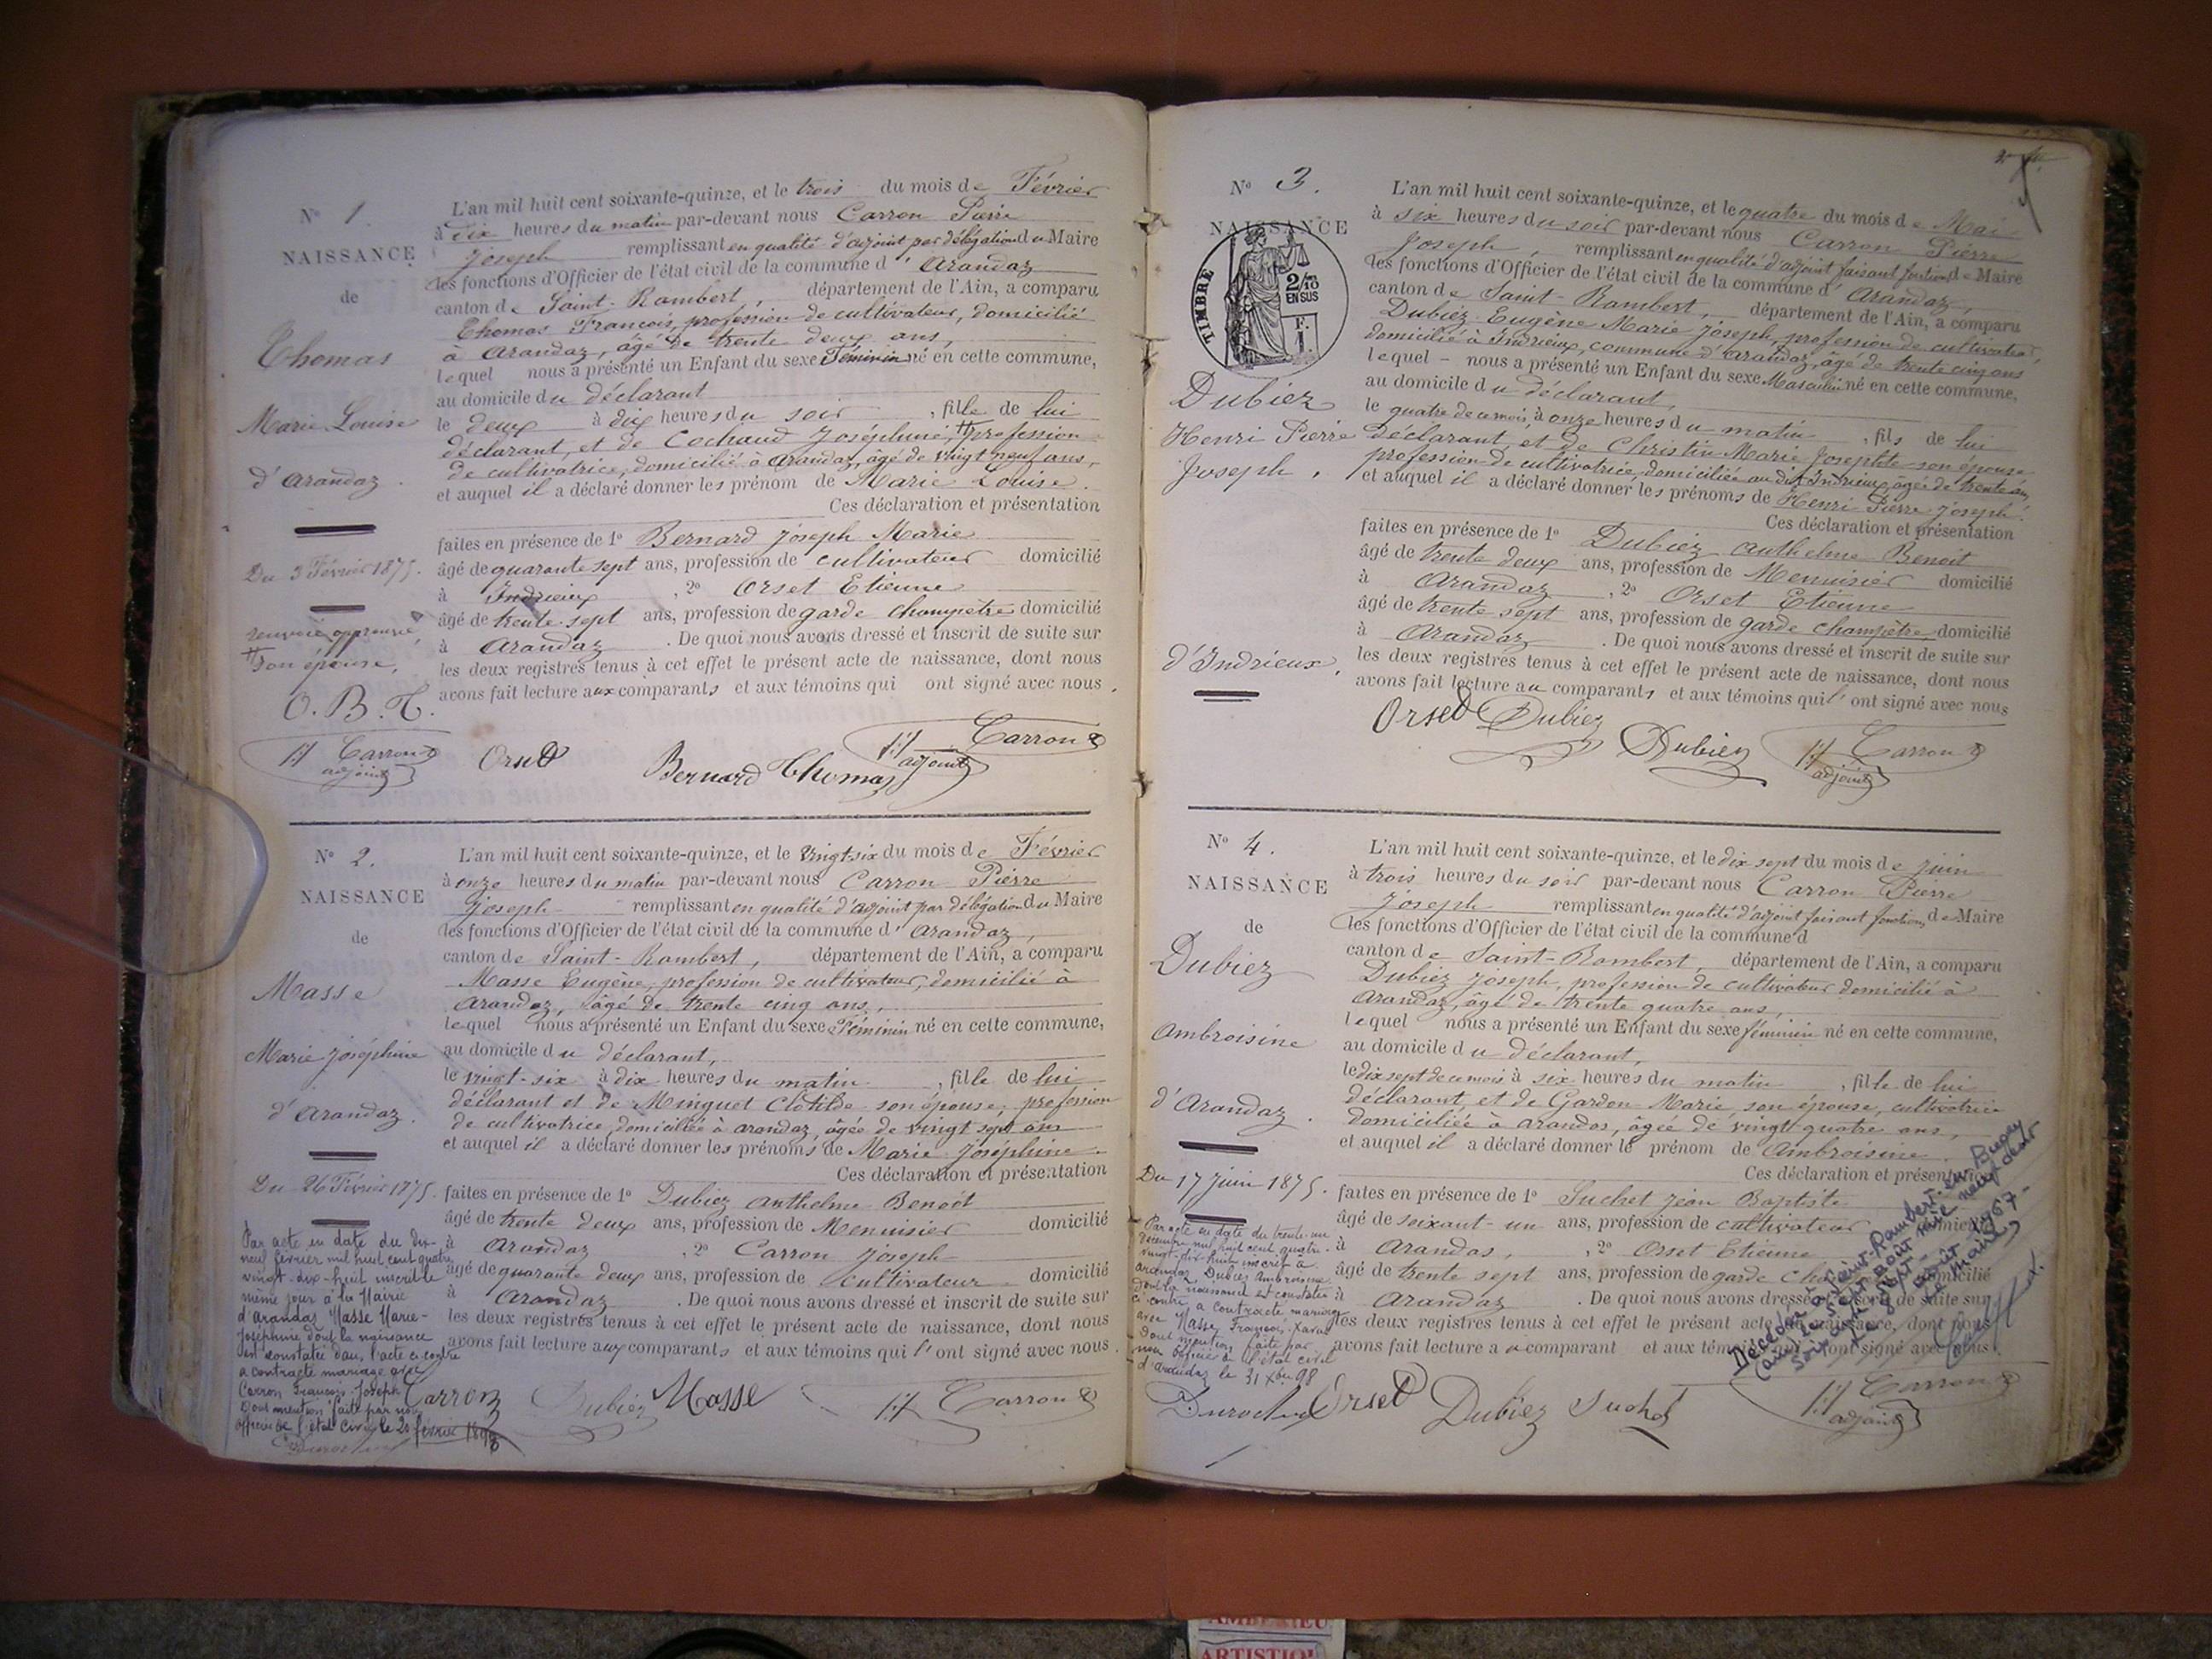 N° 1.
NAISSANCE
de
Thomas
Marie Louise
d'Arandaz.
Du 3 Février 1875.
renvoie approuvé
# son épouse,
O. B. T.
Carron
adjoint
L'an mil huit cent soixante-quinze, et le trois du mois de Février
à dix heures du matin par-devant nous Carron Pierre
Joseph remplissant en qualité d'adjoint par délégation du Maire
les fonctions d'Officier de l'état civil de la commune d'Arandaz
canton de Saint-Rambert, département de l'Ain, a comparu
Thomas François, profession de cultivateur, domicilié
à Arandaz, âgé de trente deux ans,
lequel nous a présenté un Enfant du sexe Féminin né en cette commune,
au domicile du déclarant
le deux à dix heures du soir, fille de lui
déclarant, et de Cochaud Joséphine, # profession
de cultivatrice, domicilié à Arandaz, âgé de vingt neuf ans,
et auquel il a déclaré donner les prénom de Marie Louise.
Ces déclaration et présentation
faites en présence de 1° Bernard Joseph Marie
âgé de quarante sept ans, profession de cultivateur domicilié
à Indrieux, 2° Orset Etienne
âgé de trente sept ans, profession de garde champêtre domicilié
à Arandaz. De quoi nous avons dressé et inscrit de suite sur
les deux registres tenus à cet effet le présent acte de naissance, dont nous
avons fait lecture aux comparants et aux témoins qui ont signé avec nous.
Orset Bernard Thomas Carron
adjoint
N° 2.
NAISSANCE
de
Masse
Marie Joséphine
d'Arandaz.
Du 26 Février 1875.
Par acte en date du dix-
neuf février mil huit cent quatre
vingt-dix-huit inscrit le
même jour à la Mairie
d'Arandas Masse Marie-
Joséphine, dont la naissance
est constatée dans l'acte ci-contre
a contracté mariage avec
Carron François-Joseph
Dont mention faite par nous
officier de l'état civil, le 20 février 1898
L'an mil huit cent soixante-quinze, et le vingt-six du mois de Février
à onze heures du matin par-devant nous Carron Pierre
Joseph remplissant en qualité d'adjoint par délégation du Maire
les fonctions d'Officier de l'état civil de la commune d'Arandaz,
canton de Saint-Rambert, département de l'Ain, a comparu
Masse Eugène, profession de cultivateur, domicilié à
Arandaz, âgé de trente cinq ans,
lequel nous a présenté un Enfant du sexe Féminin né en cette commune,
au domicile du déclarant,
le vingt-six à dix heures du matin, fille de lui
déclarant et de Minguet Clotilde son épouse, profession
de cultivatrice, domiciliée à Arandaz, âgée de vingt sept ans
et auquel il a déclaré donner les prénoms de Marie Joséphine.
Ces déclaration et présentation
faites en présence de 1° Dubiez Anthelme Benoit
âgé de trente deux ans, profession de Menuisier domicilié
à Arandaz, 2° Carron Joseph
âgé de quarante deux ans, profession de cultivateur domicilié
à Arandaz. De quoi nous avons dressé et inscrit de suite sur
les deux registres tenus à cet effet le présent acte de naissance, dont nous
avons fait lecture aux comparants et aux témoins qui l'ont signé avec nous.
Carron Dubiez Masse Carron
N° 3.
NAISSANCE
TIMBRE
2/10
EN SUS
F.
1.
Dubiez
Henri Pierre
Joseph,
d'Indrieux,
L'an mil huit cent soixante-quinze, et le quatre du mois de Mai
à six heures du soir par-devant nous Carron Pierre
Joseph remplissant en qualité d'adjoint faisant fonctions de Maire
les fonctions d'Officier de l'état civil de la commune d'Arandaz,
canton de Saint-Rambert, département de l'Ain, a comparu
Dubiez Eugène Marie Joseph, profession de cultivateur,
domicilié à Indrieux, commune d'Arandaz, âgé de trente cinq ans
lequel - nous a présenté un Enfant du sexe Masculin né en cette commune,
au domicile du déclarant,
le quatre de ce mois, à onze heures du matin, fils de lui
déclarant et de Christin Marie Josephte son épouse
profession de cultivatrice, domiciliée au dit Indrieux, âgée de trente ans,
et auquel il a déclaré donner les prénoms de Henri Pierre Joseph.
Ces déclaration et présentation
faites en présence de 1° Dubiez Anthelme Benoit
âgé de trente deux ans, profession de Menuisier domicilié
à Arandaz, 2° Orset Etienne
âgé de trente sept ans, profession de garde champêtre domicilié
à Arandaz. De quoi nous avons dressé et inscrit de suite sur
les deux registres tenus à cet effet le présent acte de naissance, dont nous
avons fait lecture au comparants et aux témoins qui l'ont signé avec nous
Orset Dubiez Dubiez Carron
adjoint
N° 4.
NAISSANCE
de
Dubiez
Ambroisine
d'Arandaz.
Du 17 juin 1875.
Par acte en date du trente-un
décembre mil huit cent quatre-
vingt-dix-huit inscrit à
Arandas Dubiez Ambroisine
dont la naissance est constatée
ci-contre a contracté mariage
avec Masse François-Xavier
Dont mention faite par
nous officier de l'état civil
d'Arandas le 31 Xbre 98
L'an mil huit cent soixante-quinze, et le dix sept du mois de juin
à trois heures du soir par-devant nous Carron Pierre
Joseph remplissant en qualité d'adjoint faisant fonctions de Maire
les fonctions d'Officier de l'état civil de la commune d
canton de Saint-Rambert, département de l'Ain, a comparu
Dubiez Joseph, profession de cultivateur domicilié à
Arandaz, âgé de trente quatre ans,
lequel nous a présenté un Enfant du sexe féminin né en cette commune,
au domicile du déclarant,
le dix sept de ce mois à six heures du matin, fille de lui
déclarant, et de Gardon Marie, son épouse, cultivatrice
domiciliée à Arandas, âgée de vingt quatre ans,
et auquel il a déclaré donner le prénom de Ambroisine.
Ces déclaration et présentation
faites en présence de 1° Suchet Jean Baptiste
âgé de soixant-un ans, profession de cultivateur domicilié
à Arandas, 2° Orset Etienne
âgé de trente sept ans, profession de garde domicilié
à Arandaz. De quoi nous avons dressé et inscrit de suite sur
les deux registres tenus à cet effet le présent acte de naissance, dont nous
avons fait lecture au comparant et aux témoins ont signé avec nous.
Décédée à Saint-Rambert-en-Bugey
(Ain) le sept août mil neuf cent
soixante sept -
Le août 1967 -
Le Maire
Orset Dubiez Suchet Carron
adjoint
ARTISTIQ